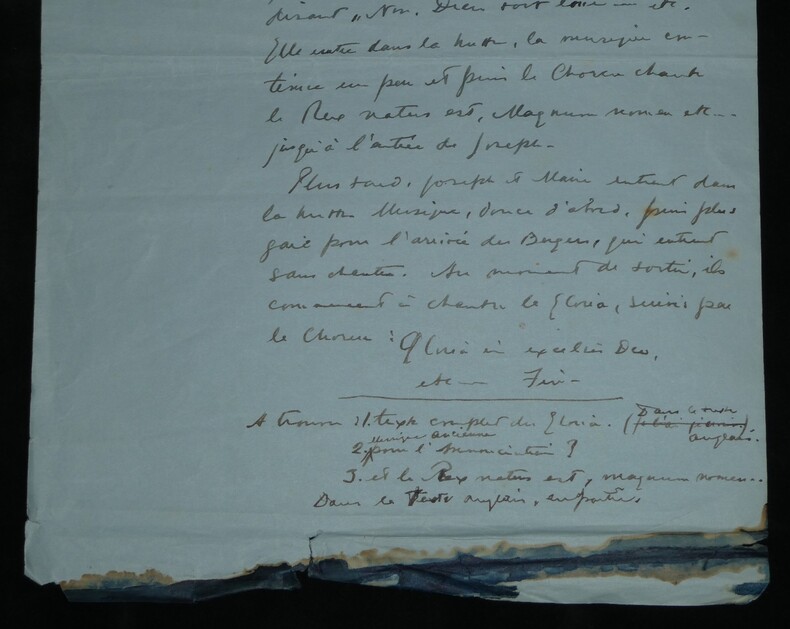 disant „Non. Dieu soit loué — etc.
Elle entre dans la hutte, la musique con-
tinue un peu et puis le Choeur chante
le Rex natus est, Magnum nomen etc...
jusqu'à l'entrée de Joseph.
Plus tard, Joseph et Marie entrent dans
la hutte Musique, douce d'abord, puis plus
gaie pour l'arrivée des Bergers, qui entrent
sans chanter. Au moment de sortir, ils
commencent à chanter le Gloria, suivis par
le Choeur : Gloria in excelsis Deo,
etc — Fin -
A trouver : 1. texte complet du Gloria. (Dans le texte
anglais.
2. musique ancienne pour l'Annonciation ?
3. et le Rex natus est, magnum nomen...
Dans le Texte anglais, en partie.